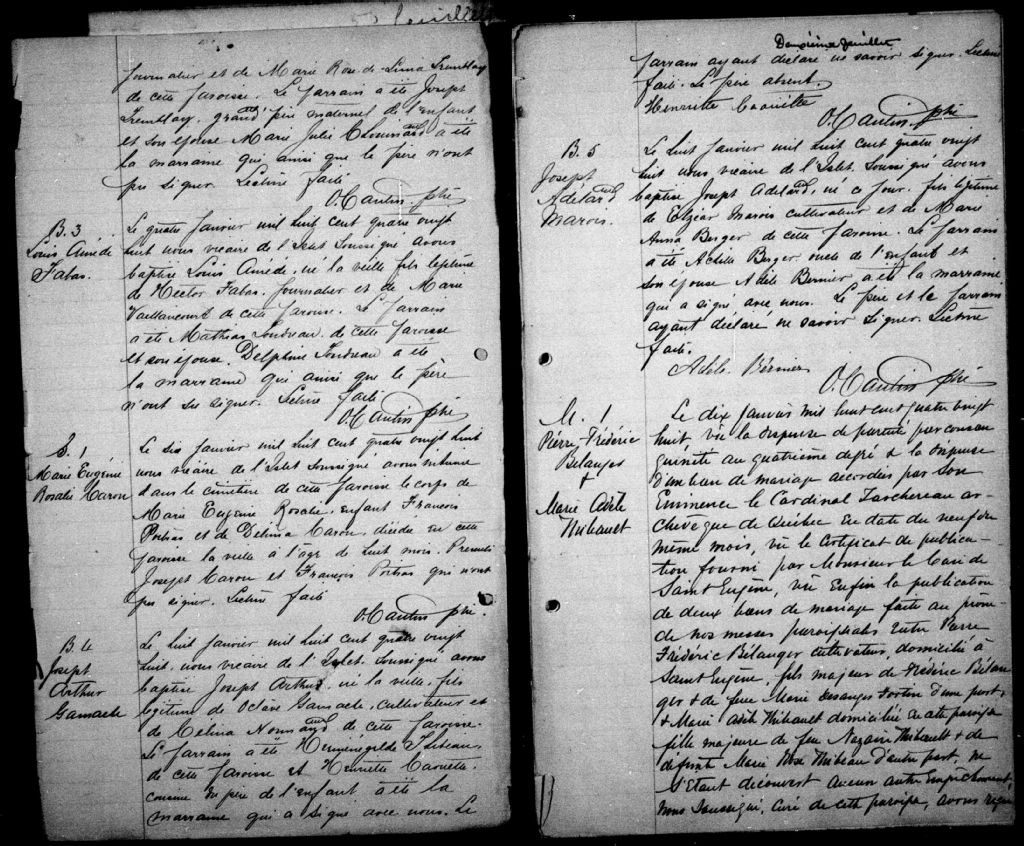 feuillet
journalier et de Marie Rose de Lima Tremblay
de cette paroisse. Le parrain a été Joseph
Tremblay, grand père maternel de l'enfant
et son épouse Marie Julie Chouinard a été
la marraine qui ainsi que le père n'ont
pu signer. Lecture faite
O. Cantin ptre
B. 3
Louis Amédé
Fabas.
Le quatre Janvier mil huit cent quatre vingt
huit nous vicaire de l'Islet soussigné avons
baptisé Louis Amédé, né la veille fils légitime
de Hector Fabas, journalier et de Marie
Vaillancourt de cette paroisse. Le parrain
a été Mathias de cette paroisse
et son épouse Delphine a été
la marraine qui ainsi que le père
n'ont su signer. Lecture faite
O. Cantin ptre
S. 1
Marie Eugénie
Rosalie Caron
Le six janvier mil huit cent quatre vingt huit
nous vicaire de l'Islet soussigné avons inhumé
dans le cimetière de cette paroisse le corps de
Marie Eugénie Rosalie, enfant François
Poitras et de Délima Caron, décédée en cette
paroisse la veille à l'age de huit mois. Présents
Joseph Caron et François Poitras qui n'ont
pu signer. Lecture faite
O. Cantin ptre.
B. 4
Joseph
Arthur
Gamache
Le huit janvier mil huit cent quatre vingt
huit, nous vicaire de l'Islet, soussigné avons
baptisé Joseph Arthur, né la veille, fils
légitime de Octave Gamache, cultivateur et
de Célina Normand de cette paroisse.
Le parrain a été Herménégilde
de cette paroisse et Henriette Caouette
cousine du père de l'enfant a été la
marraine qui a signé avec nous. Le
Deuxième feuillet
parrain ayant déclaré ne savoir signer. Lecture
faite. Le père absent.
Henriette Caouette
O. Cantin ptre
B. 5
Joseph
Adélard
Marois.
Le huit Janvier mil huit cent quatre vingt
huit nous vicaire de l'Islet, soussigné avons
baptisé Joseph Adélard, né ce jour, fils légitime
de Elzéar Marois cultivateur et de Marie
Anna Berger de cette paroisse. Le parrain
a été Achille Berger oncle de l'enfant et
son épouse Adèle Bernier a été la marraine
qui a signé avec nous. Le père et le parrain
ayant déclaré ne savoir signer. Lecture
faite.
Adèle Bernier
O. Cantin ptre
M. 1
Pierre Frédéric
Bélanger
&
Marie Adèle
Thibault
Le dix janvier mil huit cent quatre vingt
huit vu la dispense de parenté par consan
guinité au quatrième degré & la dispense
d'un ban de mariage accordées par son
Eminence le Cardinal Taschereau ar-
chevêque de Québec en date du neuf du
même mois, vu le certificat de publica-
tion fourni par Monsieur le Curé de
Saint Eugène, vu enfin la publication
de deux bans de mariage faite au prône
de nos messes paroissiales entre Pierre
Frédéric Bélanger cultivateur, domicilié à
Saint Eugène, fils majeur de Frédéric Bélan
ger & de feue Marie Desanges Fortin d'une part,
& Marie Adèle Thibault domiciliée en cette paroisse
fille majeure de feu Nazaire Thibault & de
défunte Marie Rose Thibeau d'autre part, ne
s'étant découvert aucun autre empêchement,
nous soussigné, curé de cette paroisse, avons